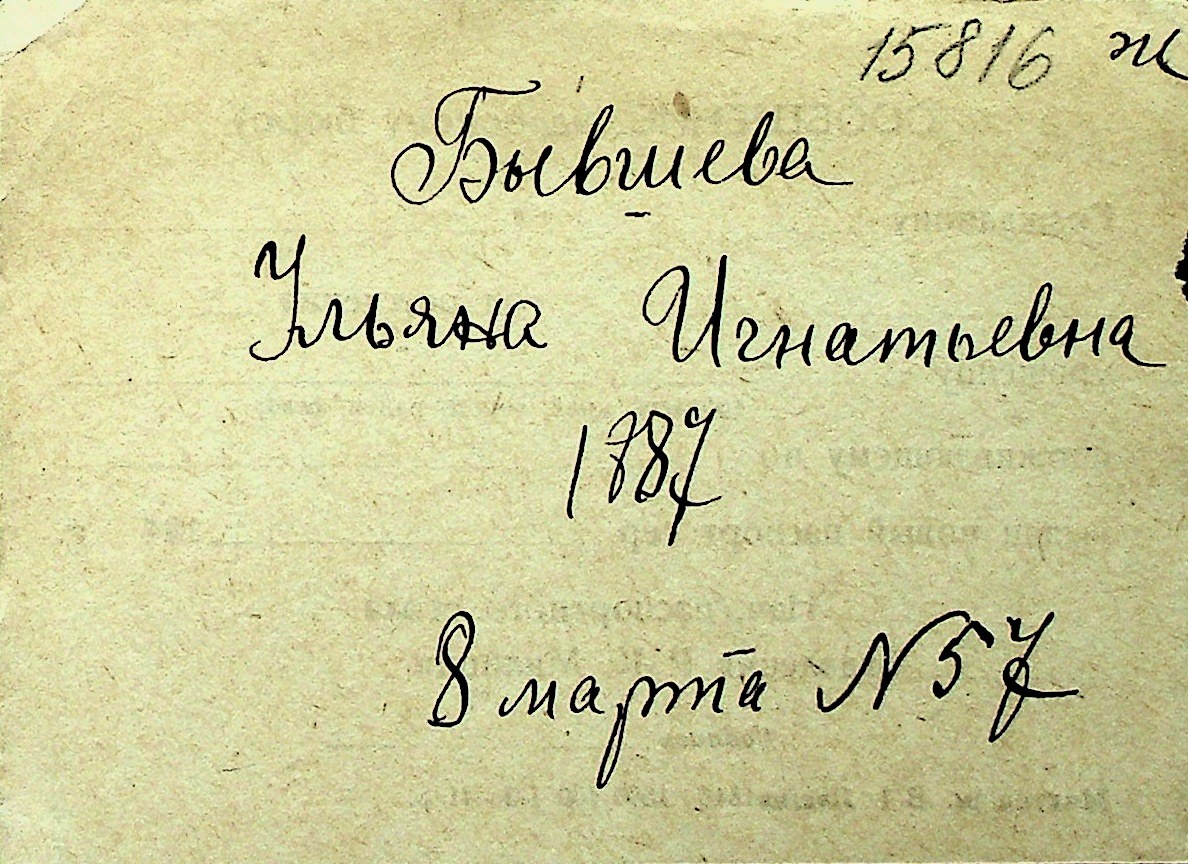 15816 ж
Бывшева
Ульяна Игнатьевна
1887
8 марта N 57